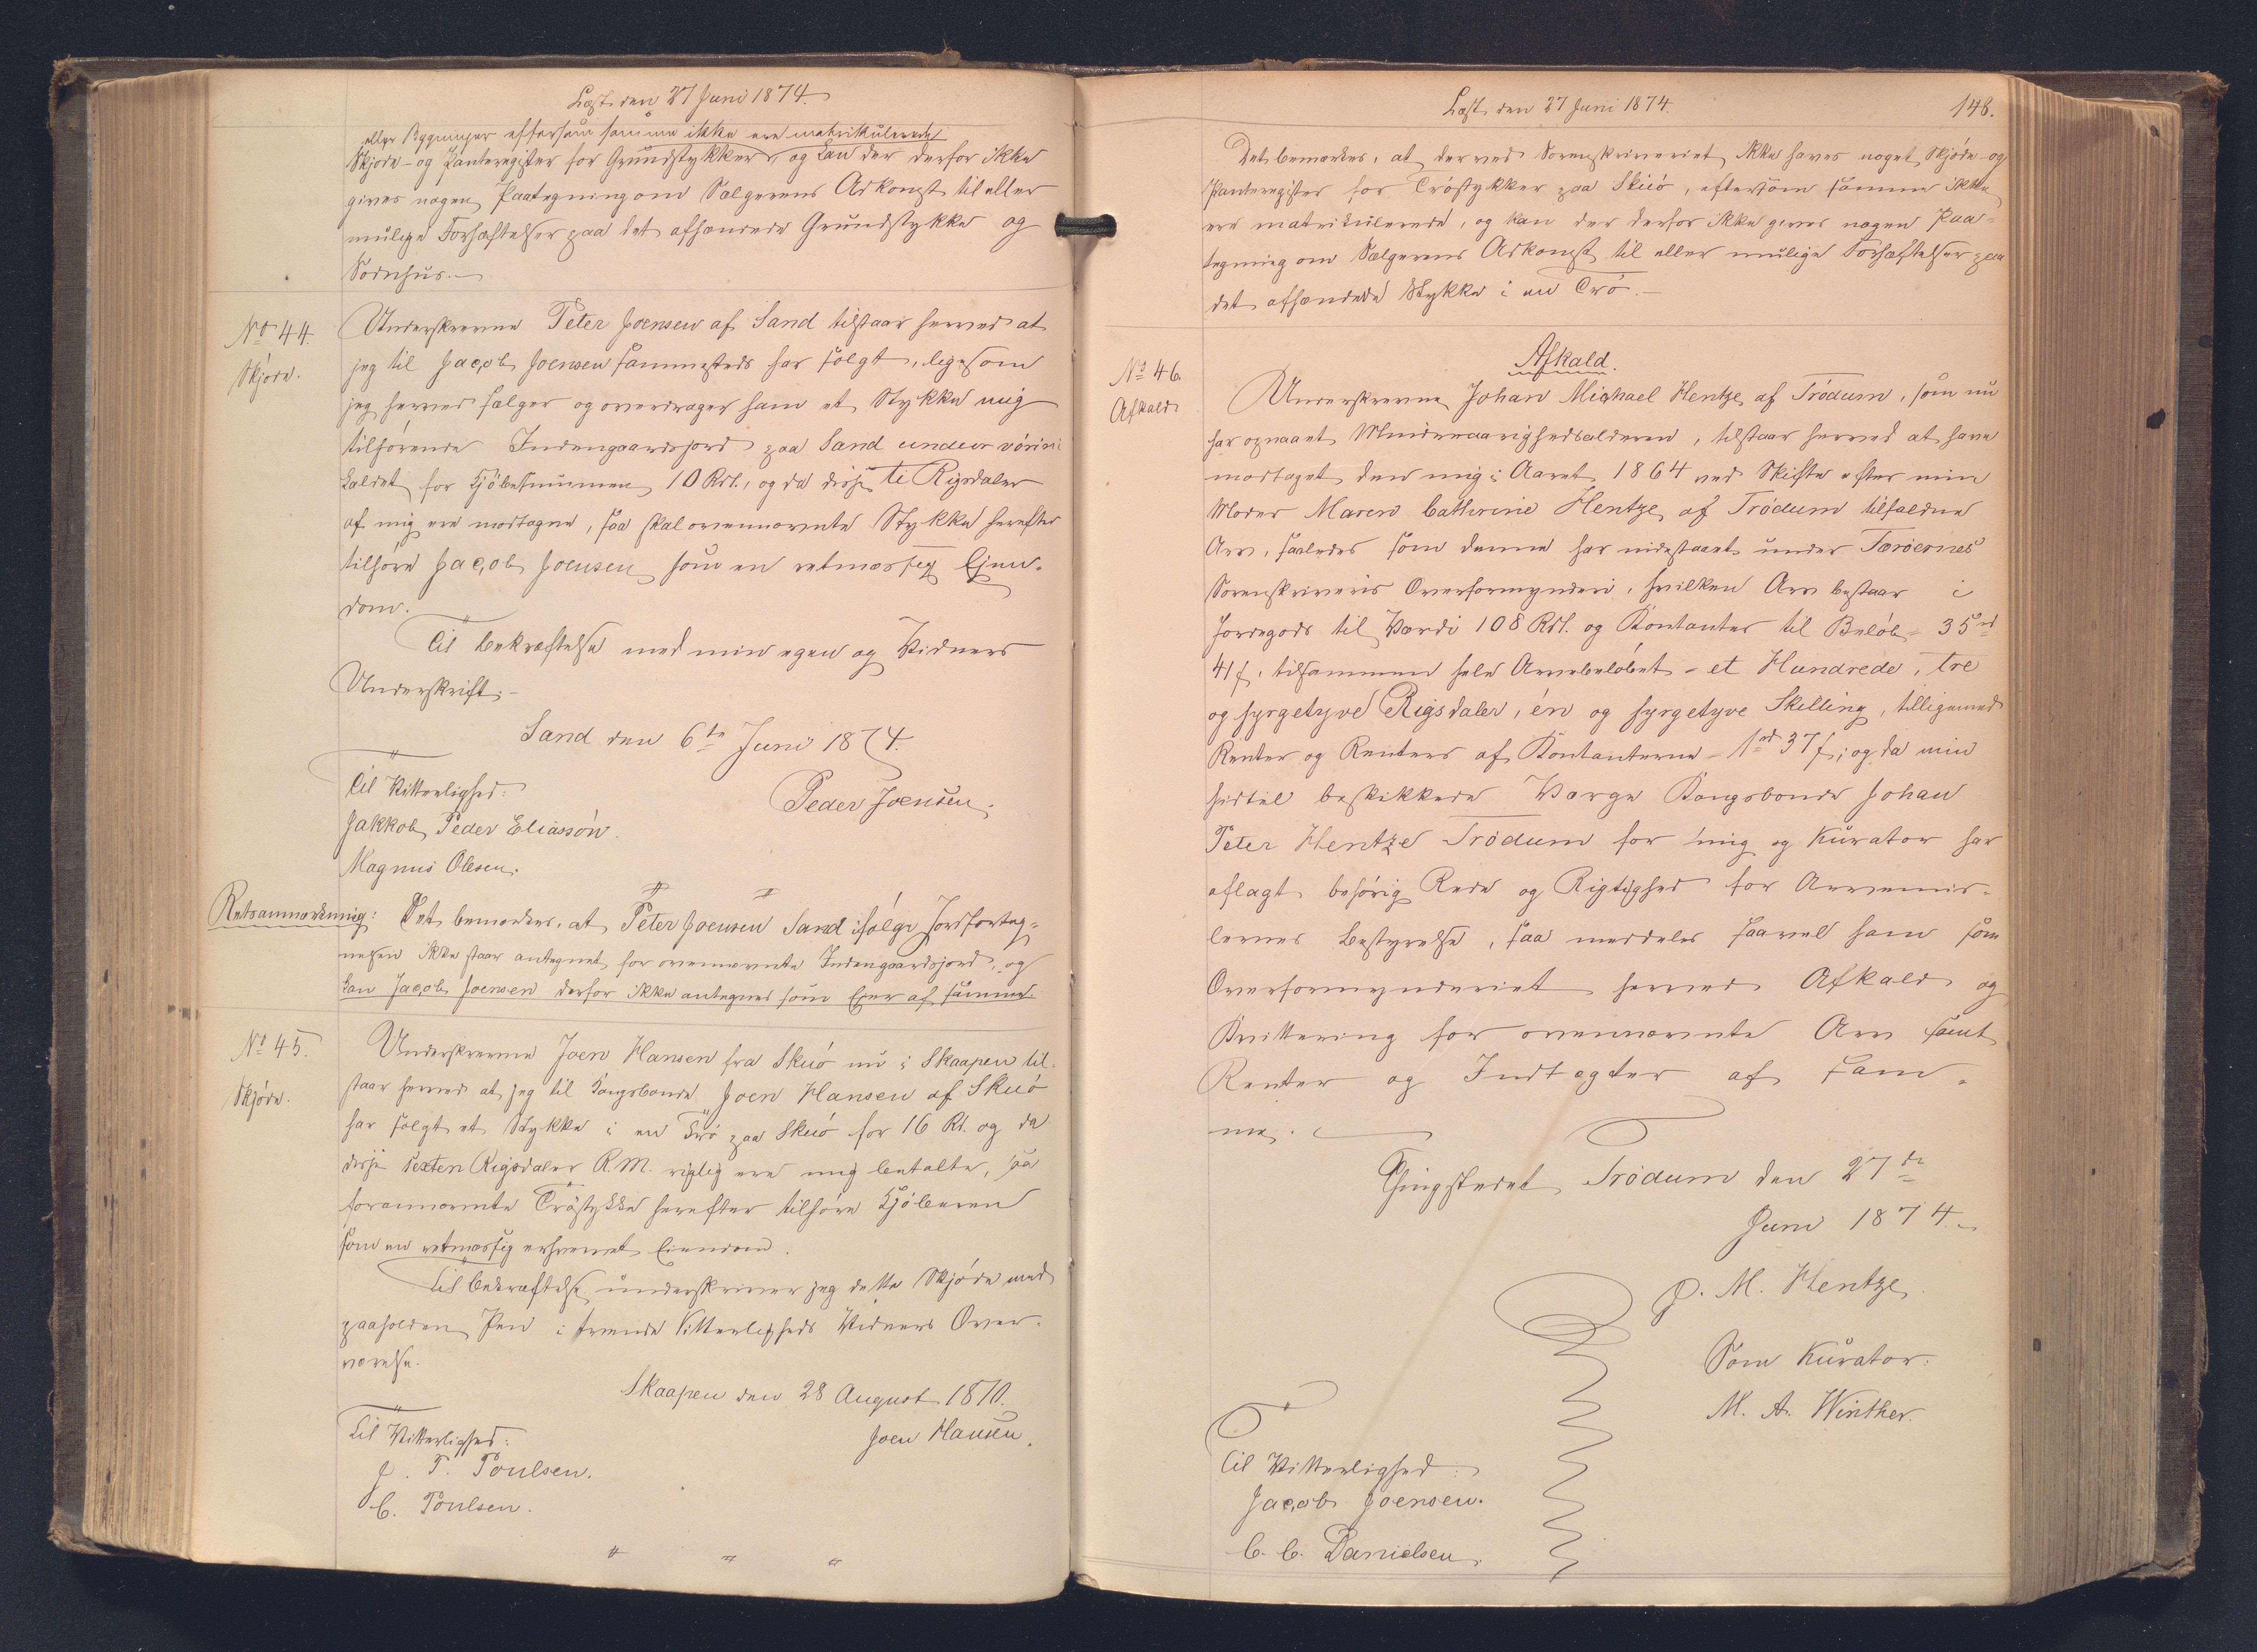 Læst den 27 Juni 1874.
eller Bygninger eftersom samme ikke ere matrikulerede
Skjøde- og Panteregister for Grundstykker, og kan der derfor ikke
gives nogen Paategning om Sælgerens Adkomst til eller
mulige Forhæftelser paa det afhændede Grundstykke og
Sodnhus.
No 44.
Skjøde.
Underskrevne Peter Joensen af Sand tilstaar herved at
jeg til Jacob Joensen sammesteds har solgt, ligesom
jeg herved sælger og overdrager ham et Stykke mig
tilhørende Indengaardsjord paa Sand
kaldet for Kjøbesummen 10 Rdl., og da disse ti Rigsdaler
af mig ere modtagne, saa skal ovennævnte Stykke herefter
tilhøre Jacob Joensen som en retmæssig Ejen-
dom.
Til Bekræftelse med min egen og Vidners
Underskrift.
Sand den 6te Juni 1874.
Peder Joensen.
Til Vitterlighed:
Jakkob Peder Eliassøn.
Magnus Olesen.
Retsanmærkning: Det bemærkes, at Peter Joensen Sand ifølge Jordforteg-
nelsen ikke staar antegnet for ovennævnte Indengaardsjord, og
kan Jacob Joensen derfor ikke antegnes som Ejer af samme.
No 45.
Skjøde.
Underskrevne Joen Hansen fra Skuø nu i Skaapen til-
staar herved at jeg til Kongsbonde Joen Hansen af Skuø
har solgt et Stykke i en Trø paa Skuø for 16 Rd. og da
disse sexten Rigsdaler R.M. rigtig ere mig betalte, saa
forannævnte Trøstykke herefter tilhøre Kjøberen
som en retmæssig erhvervet Eiendom.
Til Bekræftelse underskriver jeg dette Skjøde med
paaholden Pen i tvende Vitterligheds Vidners Over-
værelse.
Skaapen den 28 August 1870.
Joen Hansen.
Til Vitterlighed:
J. P. Poulsen.
C. Poulsen.
Læst den 27 Juni 1874.
148.
Det bemærkes, at der ved Sorenskriveriet ikke haves noget Skjøde- og
Panteregister for Trøstykker paa Skuø, eftersom samme ikke
ere matrikulerede, og kan der derfor ikke gives nogen Paa-
tegning om Sælgerens Adkomst til eller mulige Forhæftelser paa
det afhændede Stykke i en Trø.
No 46.
Afkald
Afkald.
Underskrevne Johan Michael Hentze af Trødum, som nu
har opnaaet Mindreaarighedsalderen, tilstaar herved at have
modtaget den mig i Aaret 1864 ved Skifte efter min
Moder Maren Cathrine Hentze af Trødum tilfaldne
Arv, saaledes som denne har indestaaet under Færøernes
Sorenskriveris Overformynderi, hvilken Arv bestaar i
Jordegods til Værdi 108 Rdl. og Kontanter til Beløb = 35 rd
41 ß, tilsammen hele Arvebeløbet = et Hundrede, tre
og fyrgetyve Rigsdaler, én og fyrgetyve Skilling, tilligemed
Renter og Renters af Kontanterne - 1 rd 37 ß; og da min
hidtil beskikkede Værge Kongsbonde Johan
Peter Hentze Trødum for mig og Kurator har
aflagt behørig Rede og Rigtighed for Arvemid-
lernes Bestyrelse, saa meddeles saavel ham som
Overformynderiet herved Afkald og
Kvittering for ovennævnte Arv samt
Renter og Indtægter af sam-
me.
Thingstedet Trødum den 27de
Juni 1874.
J. M. Hentze.
Som Kurator:
M. A. Winther.
Til Vitterlighed:
Jacob Joensen.
C. C. Danielsen.